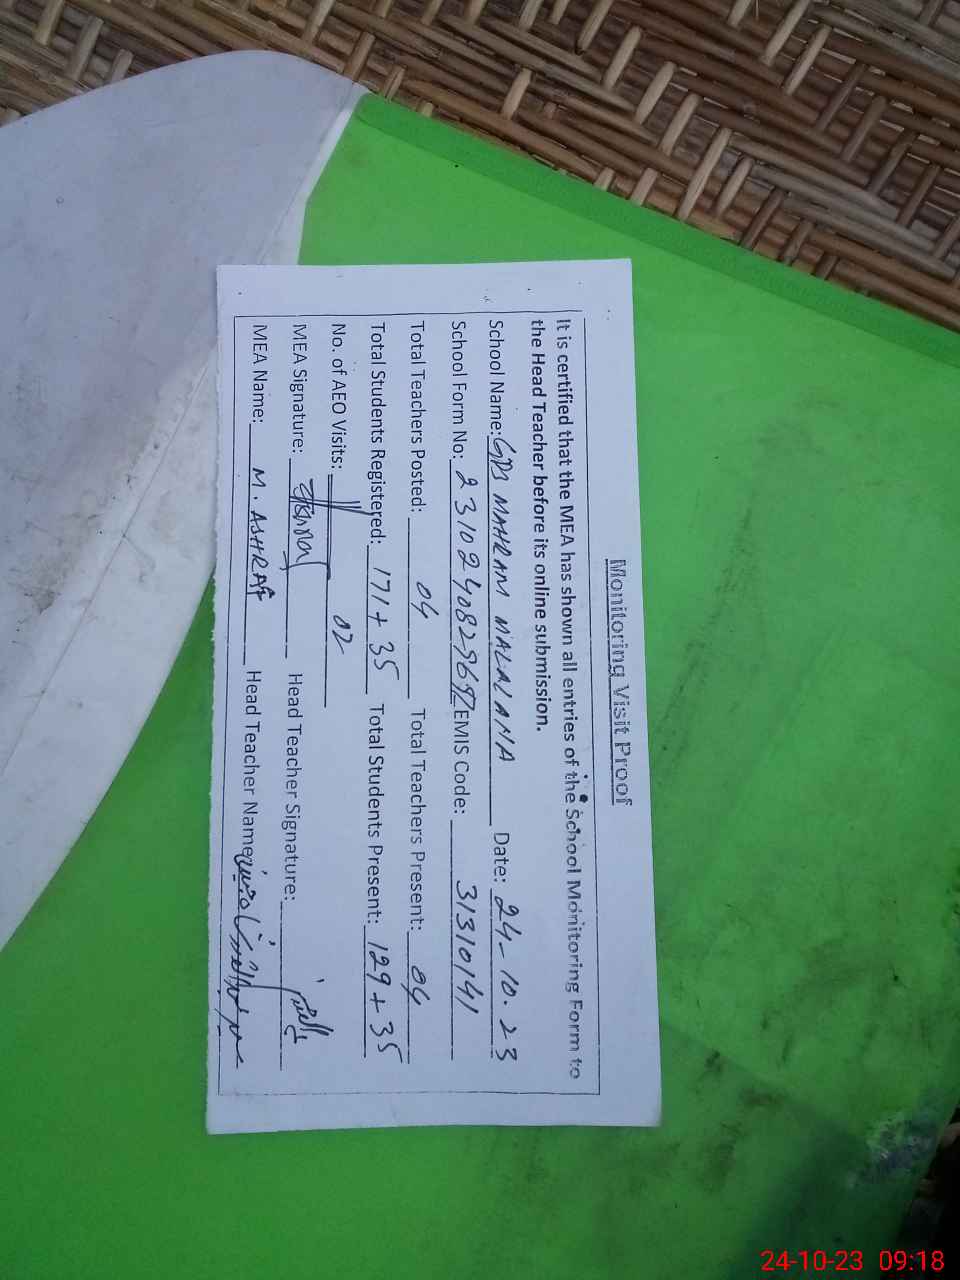 Monitoring Visit Proof
It is certified that the MEA has shown all entries of the School Monitoring Form to
the Head Teacher before its online submission.
School Name: GPS MAHRAM MALALANA Date: 24-10.23
School Form No: EMIS Code: 31310141
Total Teachers Posted: 04 Total Teachers Present: 04
Total Students Registered: 171+35 Total Students Present: 129+35
No. of AEO Visits: 02
MEA Signature: Head Teacher Signature:
MEA Name: M. ASHRAF Head Teacher Name:
24-10-23 09:18